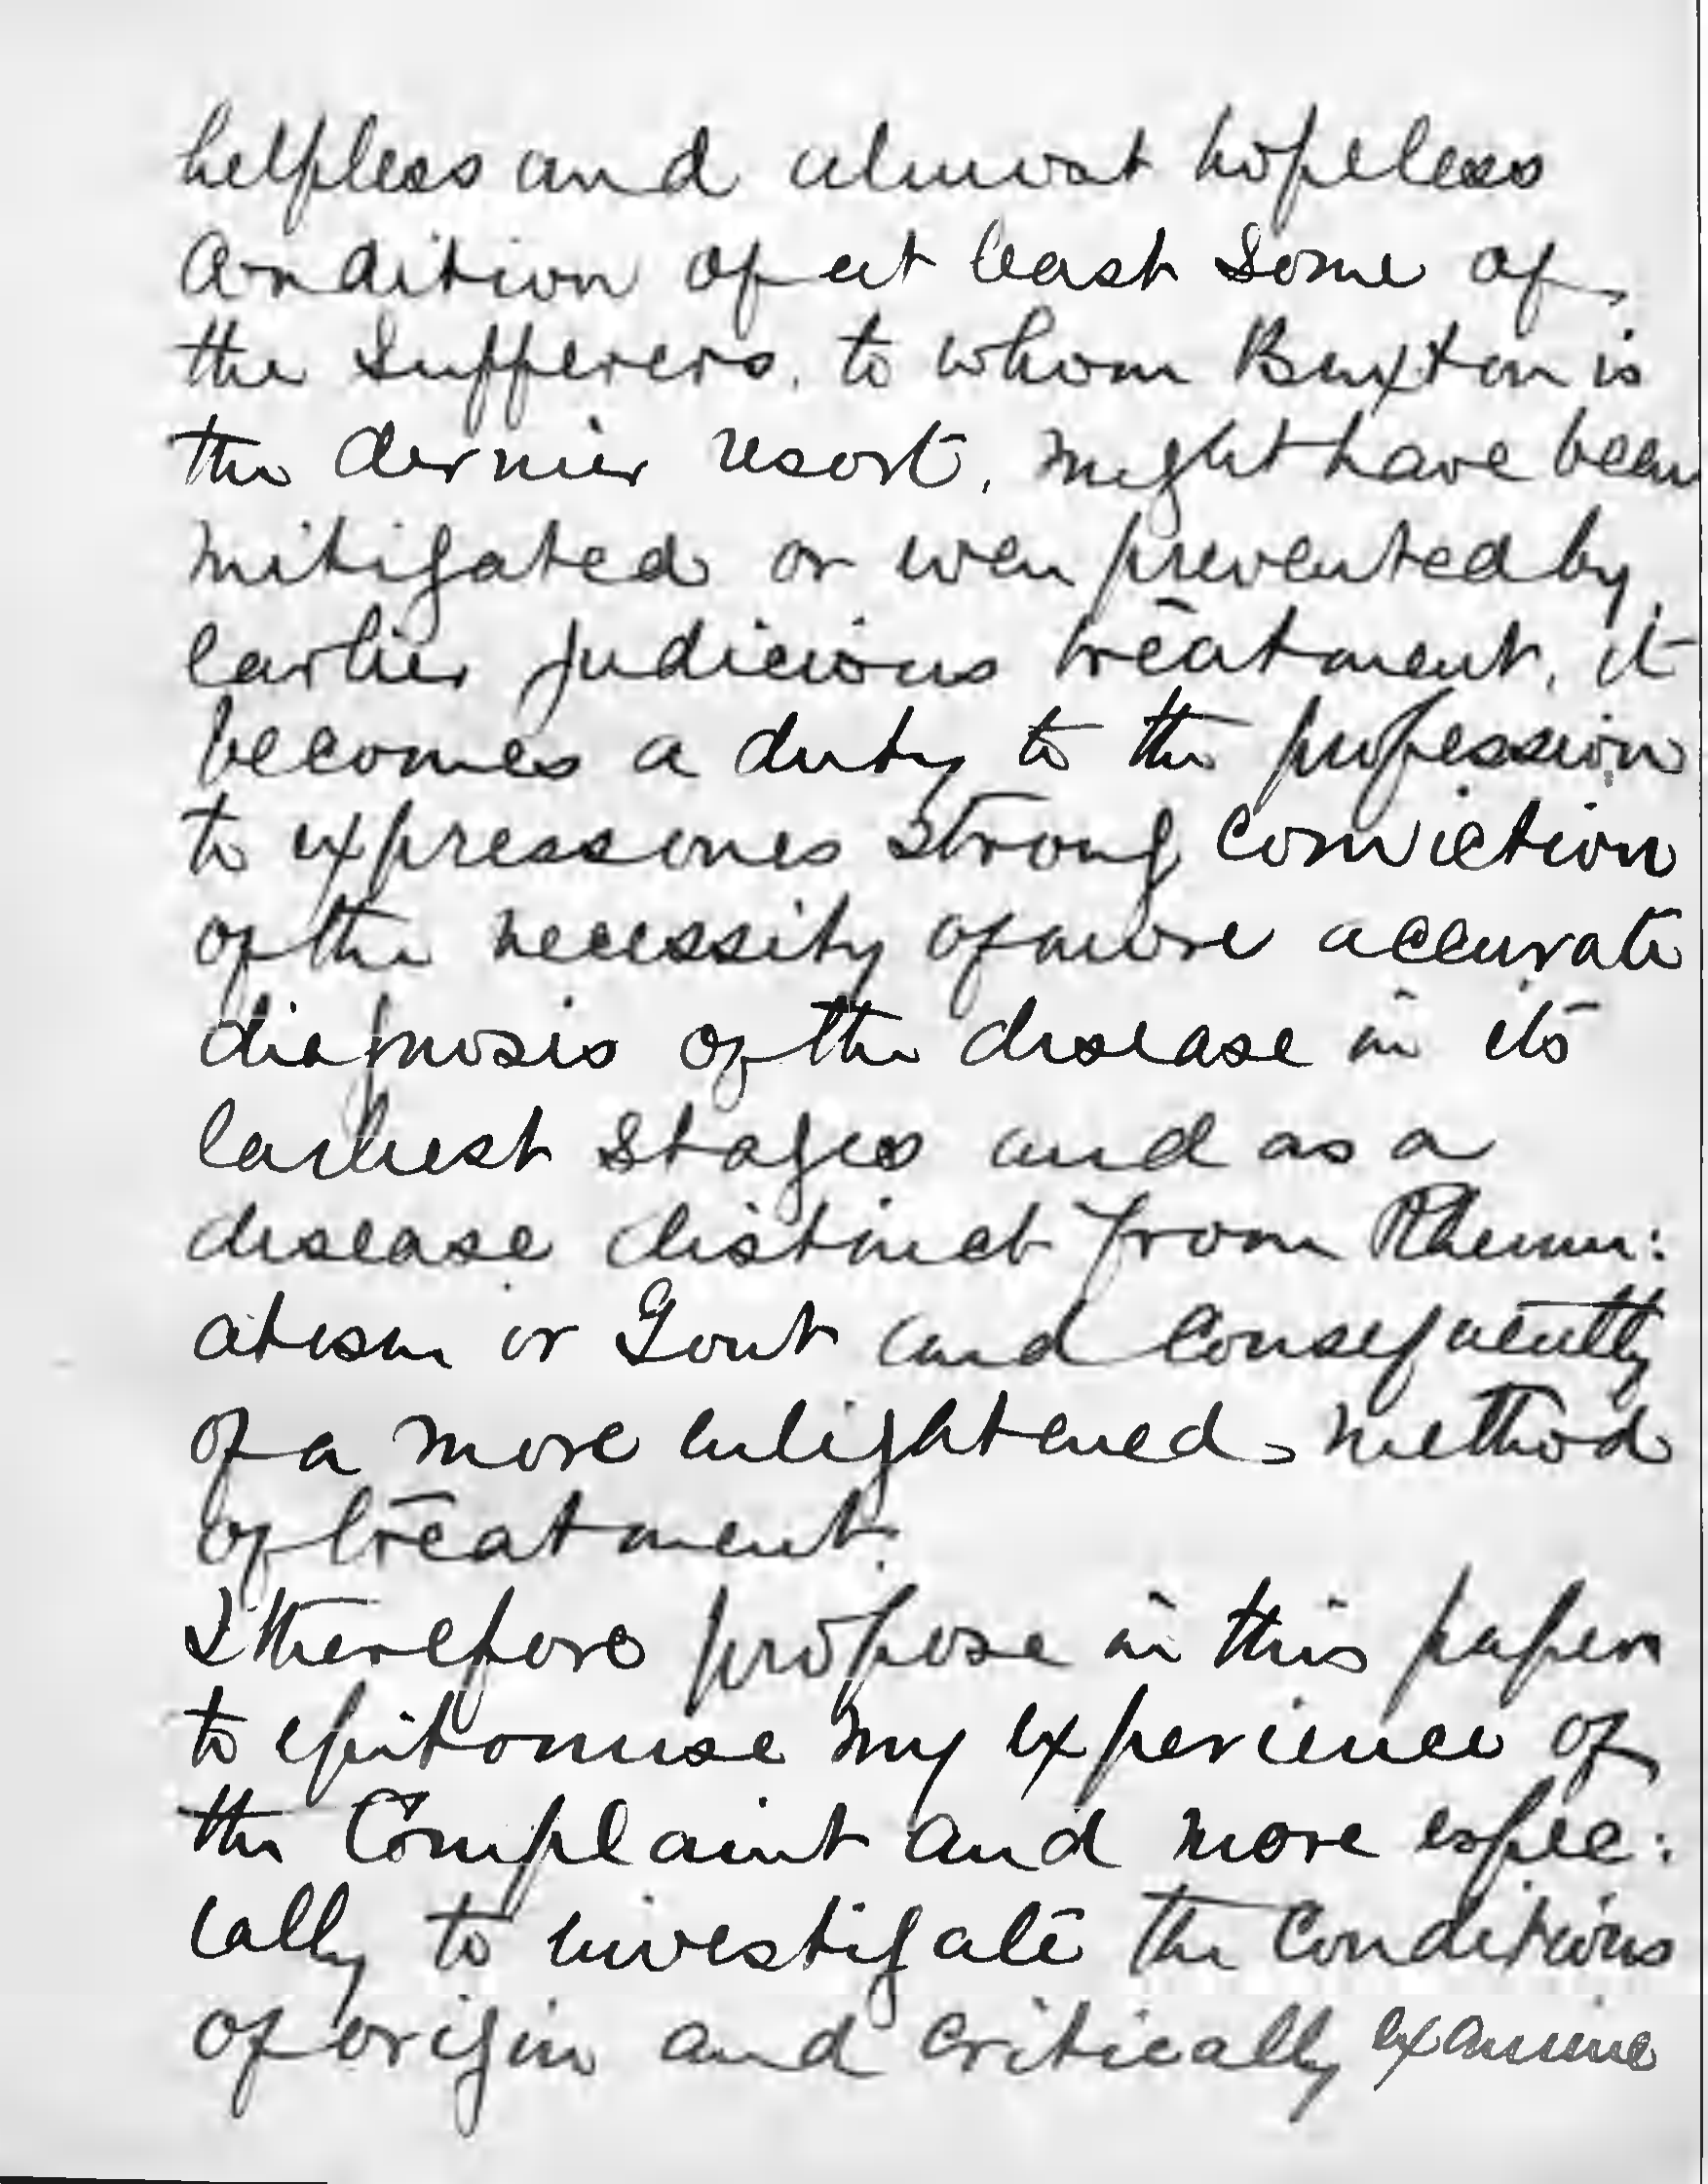 helpless and almost hopeless
Condition of at least Some of
the Sufferers, to whom Buxton is
the dernier resort, might have been
mitigated or even prevented by
earlier judicious treatment, it
becomes a duty to the profession
to express ones strong Conviction
of the necessity of more accurate
diagnosis of the disease in its
earliest stages and as a
disease distinct from Rheum:
atism or Gout and Consequently
of a more enlightened method
of treatment.
I therefore propose in this paper
to epitomise my experience of
the Complaint and more espec:
ially to investigate the Conditions
of origin and critically examine